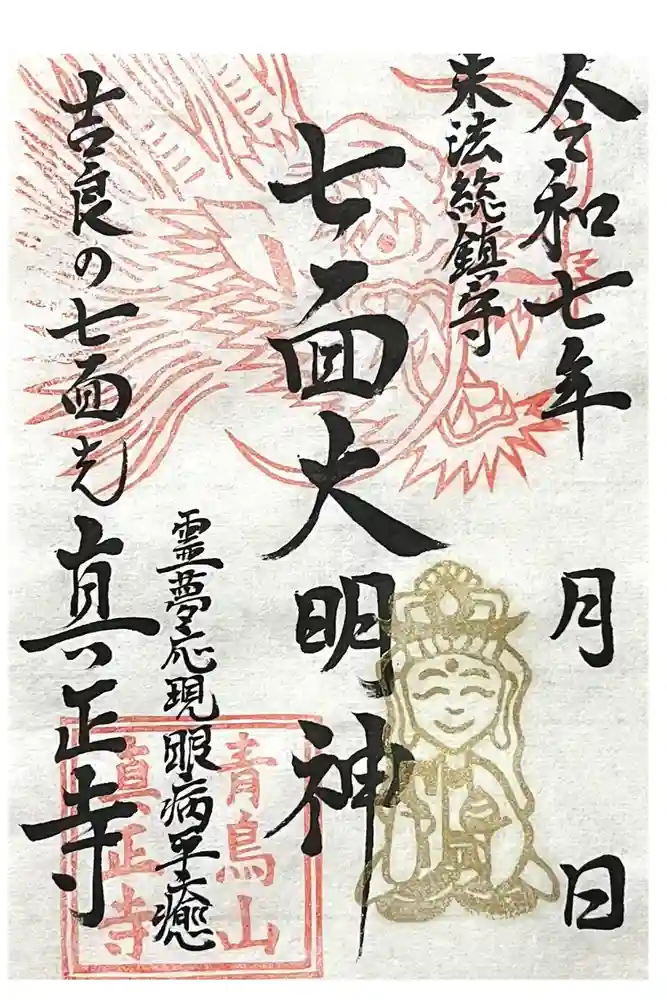 令和七年 月 日
末法総鎮守
七面大明神
霊夢応現眼病平癒
吉良の七面先
真正寺
青鳥山
真正寺